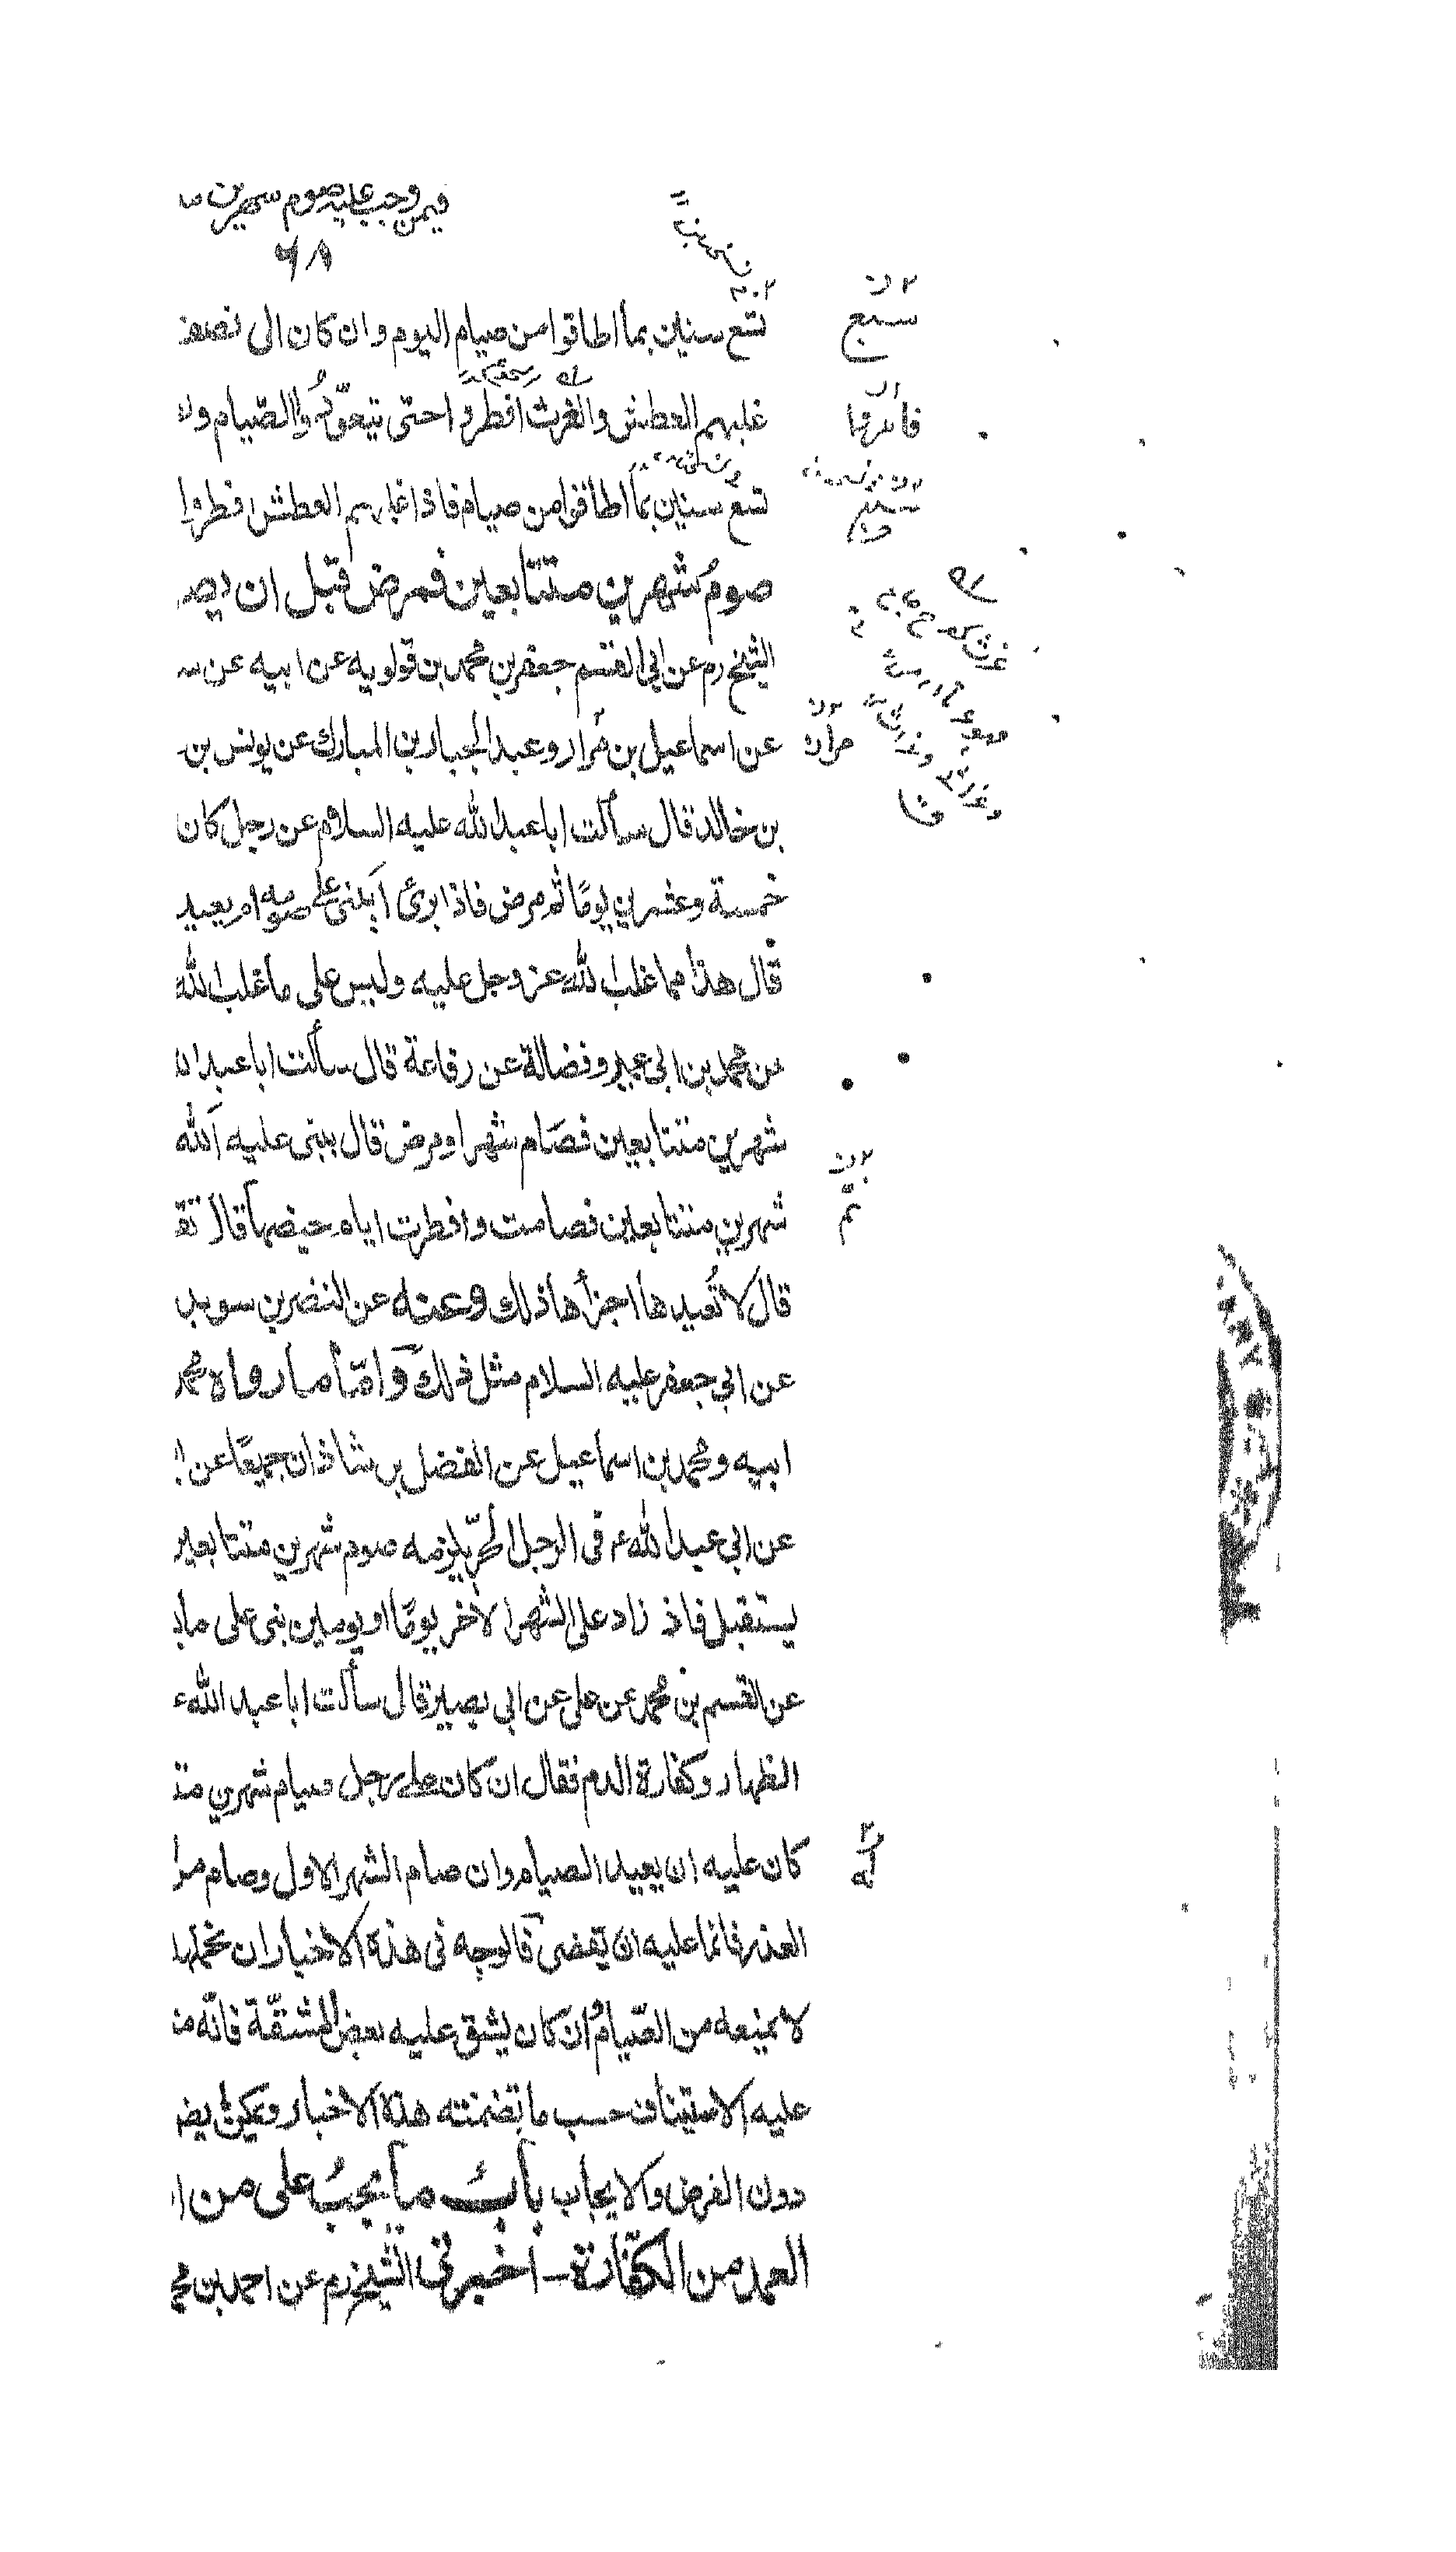 فيمن وجب عليه صوم شهرين
٦٨
تسع سنين بما اطاقوا من صيام اليوم وان كان الى نصف
غلبهم العطش والغرث افطروا حتى يتعوّدوا الصّيام ولا
تسع سنين بما اطاقوا من صيام فاذا غلبهم العطش افطروا
صوم شهرين متتابعين فمرض قبل ان يصـ
الشيخ ره عن ابي القسم جعفر بن محمد بن قولويه عن ابيه عن سـ
عن اسماعيل بن مرار وعبد الجبار بن المبارك عن يونس بن
بن خالد قال سألت ابا عبد الله عليه السلام عن رجل كان
خمسة وعشرين يومًا ثم مرض فاذا برئ ايبنى على صومه ام يعيد
قال هذا مما غلب الله عز وجل عليه وليس على ما غلب الله
عن محمد بن ابي عمير وفضالة عن رفاعة قال سألت ابا عبد ال
شهرين متتابعين فصام شهرا ومرض قال يبنى عليه الله
شهرين متتابعين فصامت وافطرت ايام حيضها قال تقـ
قال لا تُعيدها اجزأها ذلك وعنه عن النضر بن سويد
عن ابي جعفر عليه السلام مثل ذلك وامّا ما رواه محمد
ابيه ومحمد بن اسماعيل عن الفضل بن شاذان جميعًا عن ا
عن ابي عبد الله ع في الرجل الحرّ يلزمه صوم شهرين متتابعين
يستقبل فاذ زاد على الشهر الاخر يومًا او يومين بنى على ما بـ
عن القسم بن محمد عن على عن ابي بصير قال سألت ابا عبد الله ع
الظهار وكفارة الدم فقال ان كان على رجل صيام شهرين متـ
كان عليه ان يعيد الصيام وان صام الشهر الاول وصام من ا
العذر فانما عليه ان يقضى فالوجه في هذه الاخبار ان نحملها
لا يمنعه من الصّيام وان كان يشق عليه بعض المشقّة فانّه مـ
عليه الاستيناف حسب ما تضمنته هذه الاخبار ويمكن
دون الفرض والايجاب باب ما يجبُ على من ا
العمد من الكفّارة اخبرني الشيخ ره عن احمد بن محـ
سبع
مراره
تم